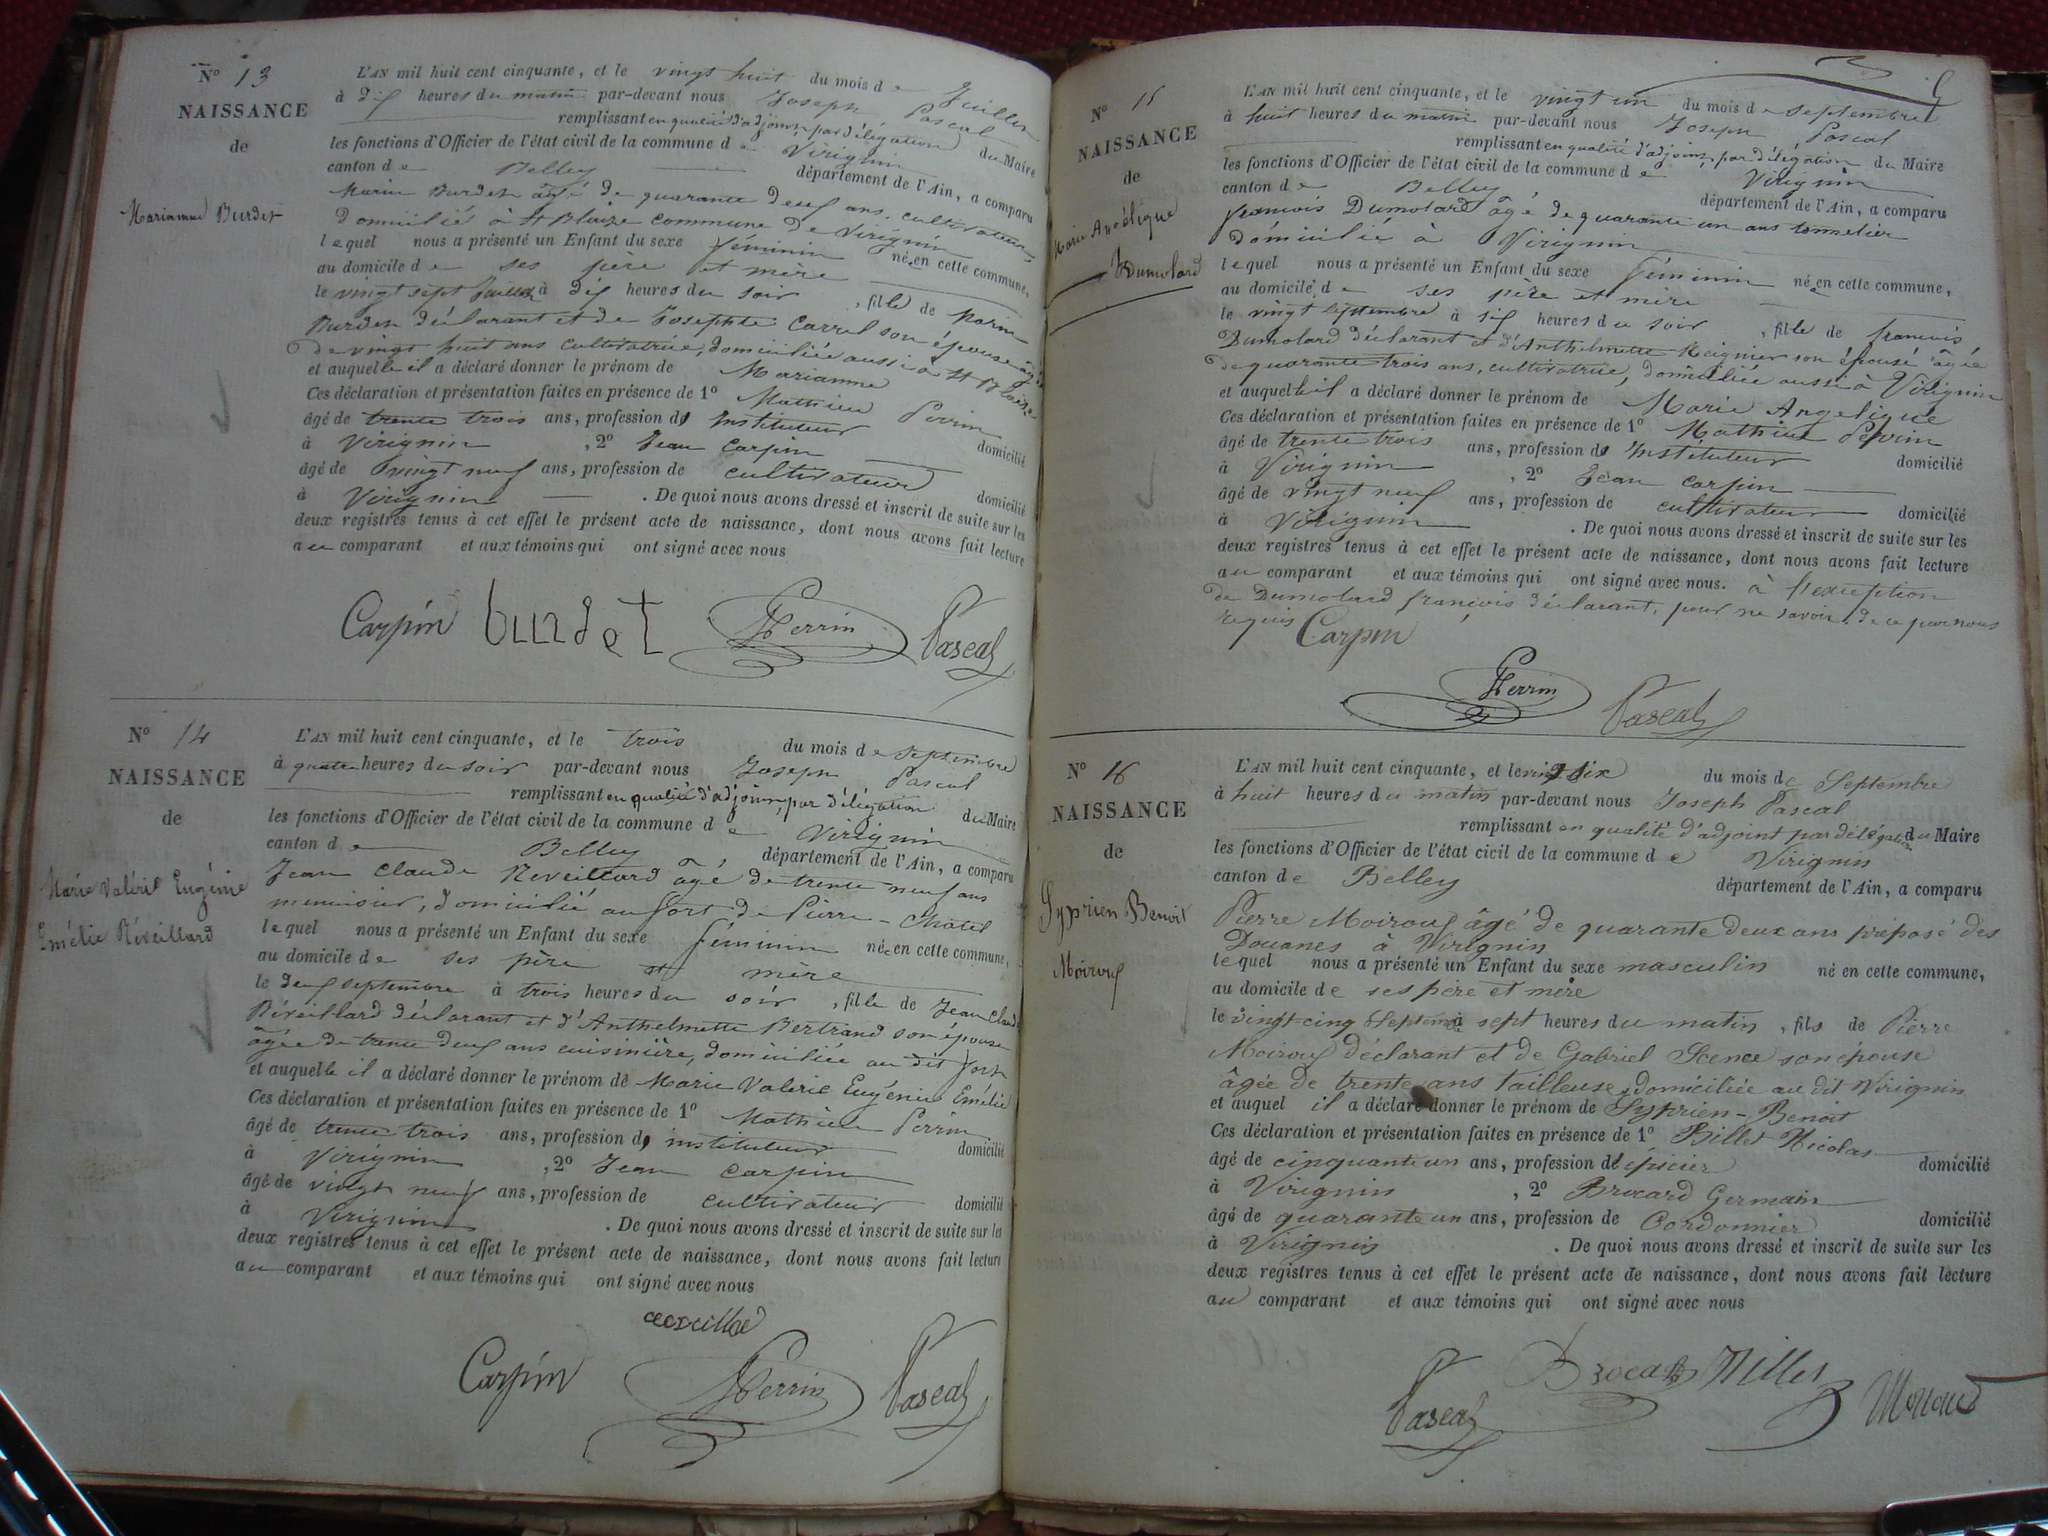 N° 13
NAISSANCE
de
Marianne Burdet
L'AN mil huit cent cinquante, et le vingt huit du mois de Juillet
à dix heures du matin par-devant nous Joseph Pascal
remplissant en qualité d'adjoint, par délégation du Maire
les fonctions d'Officier de l'état civil de la commune de Virignin
canton de Belley département de l'Ain, a comparu
Marin Burdet âgé de quarante deux ans, cultivateur
domicilié à St Blaize commune de Virignin
lequel nous a présenté un Enfant du sexe féminin née en cette commune,
au domicile de ses père et mère
le vingt sept Juillet à dix heures du soir, fille de Marin
Burdet déclarant et de Josephte Carrel son épouse âgée
de vingt huit ans cultivatrice, domiciliée aussi à St Blaize
et auquelle il a déclaré donner le prénom de Marianne
Ces déclaration et présentation faites en présence de 1° Mathieu Perrin
âgé de trente trois ans, profession d'Instituteur domicilié
à Virignin, 2° Jean Carpin
âgé de vingt neuf ans, profession de cultivateur domicilié
à Virignin. De quoi nous avons dressé et inscrit de suite sur les
deux registres tenus à cet effet le présent acte de naissance, dont nous avons fait lecture
au comparant et aux témoins qui ont signé avec nous
Carpin burdet Perrin Pascal
N° 14
NAISSANCE
de
Marie Valérie Eugénie
Emélie Réveillard
L'AN mil huit cent cinquante, et le trois du mois de septembre
à quatre heures du soir par-devant nous Joseph Pascal
remplissant en qualité d'adjoint, par délégation du Maire
les fonctions d'Officier de l'état civil de la commune de Virignin
canton de Belley département de l'Ain, a comparu
Jean Claude Reveillard âgé de trente neuf ans
menuisier, domicilié au fort de Pierre-Châtel
lequel nous a présenté un Enfant du sexe féminin née en cette commune,
au domicile de ses père et mère
le deux septembre à trois heures du soir, fille de Jean Claude
Réveillard déclarant et d'Anthelmette Bertrand son épouse
âgée de trente deux ans cuisinière, domiciliée au dit fort
et auquelle il a déclaré donner le prénom de Marie Valérie Eugénie Emélie
Ces déclaration et présentation faites en présence de 1° Mathieu Perrin
âgé de trente trois ans, profession d'instituteur domicilié
à Virignin, 2° Jean Carpin
âgé de vingt neuf ans, profession de cultivateur domicilié
à Virignin. De quoi nous avons dressé et inscrit de suite sur les
deux registres tenus à cet effet le présent acte de naissance, dont nous avons fait lecture
au comparant et aux témoins qui ont signé avec nous
Carpin Perrin Pascal
N° 15
NAISSANCE
de
Marie Angélique
Dumolard
L'AN mil huit cent cinquante, et le vingt un du mois de septembre
à huit heures du matin par-devant nous Joseph Pascal
remplissant en qualité d'adjoint, par délégation du Maire
les fonctions d'Officier de l'état civil de la commune de Virignin
canton de Belley département de l'Ain, a comparu
françois Dumolard âgé de quarante un ans tonnelier
domicilié à Virignin
lequel nous a présenté un Enfant du sexe féminin née en cette commune,
au domicile de ses père et mère
le vingt septembre à six heures du soir, fille de françois
Dumolard déclarant et d'Anthelmette Meignier son épouse âgée
de quarante trois ans, cultivatrice, domiciliée aussi à Virignin
et auquelle il a déclaré donner le prénom de Marie Angelique
Ces déclaration et présentation faites en présence de 1° Mathieu Perrin
âgé de trente trois ans, profession d'Instituteur domicilié
à Virignin, 2° Jean Carpin
âgé de vingt neuf ans, profession de cultivateur domicilié
à Virignin. De quoi nous avons dressé et inscrit de suite sur les
deux registres tenus à cet effet le présent acte de naissance, dont nous avons fait lecture
au comparant et aux témoins qui ont signé avec nous. à l'exception
de Dumolard françois déclarant, pour ne savoir, de ce par nous
requis Carpin
Perrin Pascal
N° 16
NAISSANCE
de
Syprien Benoit
Moiroux
L'AN mil huit cent cinquante, et le vingt six du mois de Septembre
à huit heures du matin par-devant nous Joseph Pascal
remplissant en qualité d'adjoint par délégation du Maire
les fonctions d'Officier de l'état civil de la commune de Virignin
canton de Belley département de l'Ain, a comparu
Pierre Moiroux âgé de quarante deux ans préposé des
Douanes à Virignin
lequel nous a présenté un Enfant du sexe masculin né en cette commune,
au domicile de ses père et mère
le vingt-cinq Septemb à sept heures du matin, fils de Pierre
Moiroux déclarant et de Gabriel Scence son épouse
âgée de trente ans tailleuse, domiciliée au dit Virignin
et auquel il a déclaré donner le prénom de Syprien-Benoit
Ces déclaration et présentation faites en présence de 1° Billet Nicolas
âgé de cinquante un ans, profession d'épicier domicilié
à Virignin, 2° Brocard Germain
âgé de quarante un ans, profession de Cordonnier domicilié
à Virignin. De quoi nous avons dressé et inscrit de suite sur les
deux registres tenus à cet effet le présent acte de naissance, dont nous avons fait lecture
au comparant et aux témoins qui ont signé avec nous
Pascal Brocard Billet